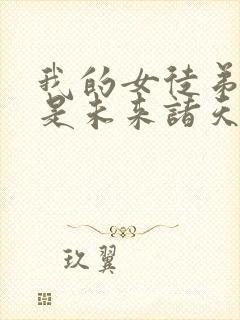 我的女徒弟
是未来諸天
玖翼